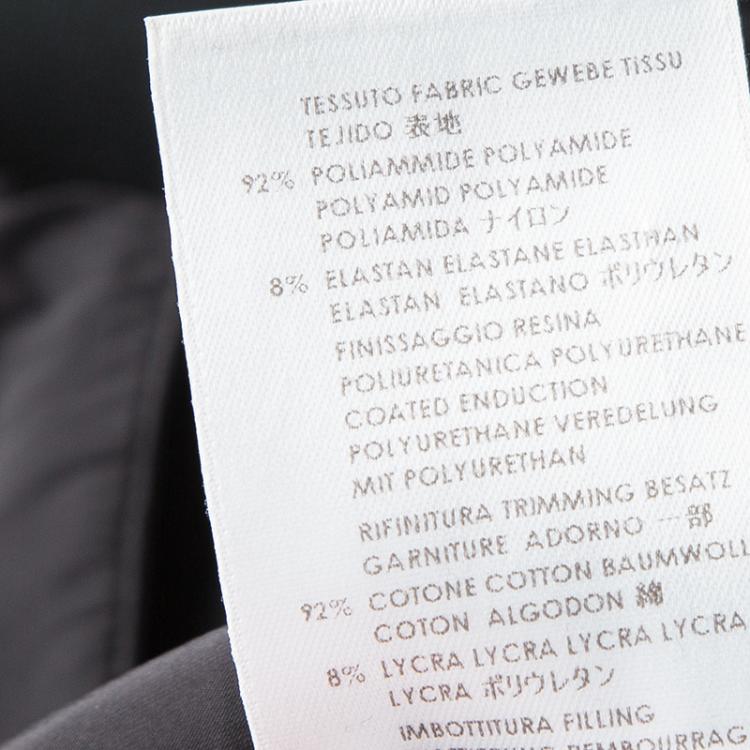 TESSUTO FABRIC GEWEBE TISSU
TEJIDO 表地
92% POLIAMMIDE POLYAMIDE
POLYAMID POLYAMIDE
POLIAMIDA ナイロン
8% ELASTAN ELASTANE ELASTHAN
ELASTAN ELASTANO ポリウレタン
FINISSAGGIO RESINA
POLIURETANICA POLYURETHANE
COATED ENDUCTION
POLYURETHANE VEREDELUNG
MIT POLYURETHAN
RIFINITURA TRIMMING BESATZ
GARNITURE ADORNO 一部
92% COTONE COTTON BAUMWOLL
COTON ALGODON 綿
8% LYCRA LYCRA LYCRA LYCRA
LYCRA ポリウレタン
IMBOTTITURA FILLING